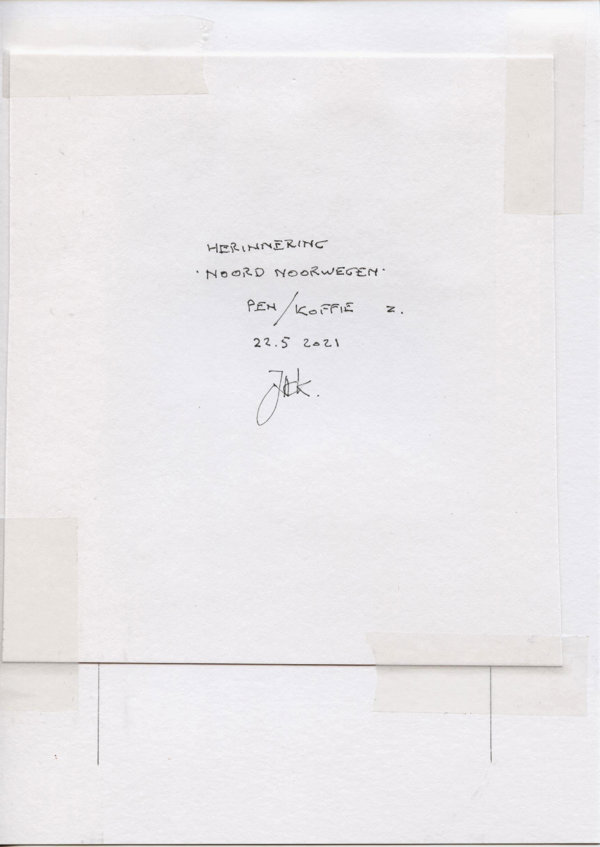 HERINNERING
'NOORD NOORWEGEN'
PEN/KOFFIE 2.
22.5 2021
Jack.